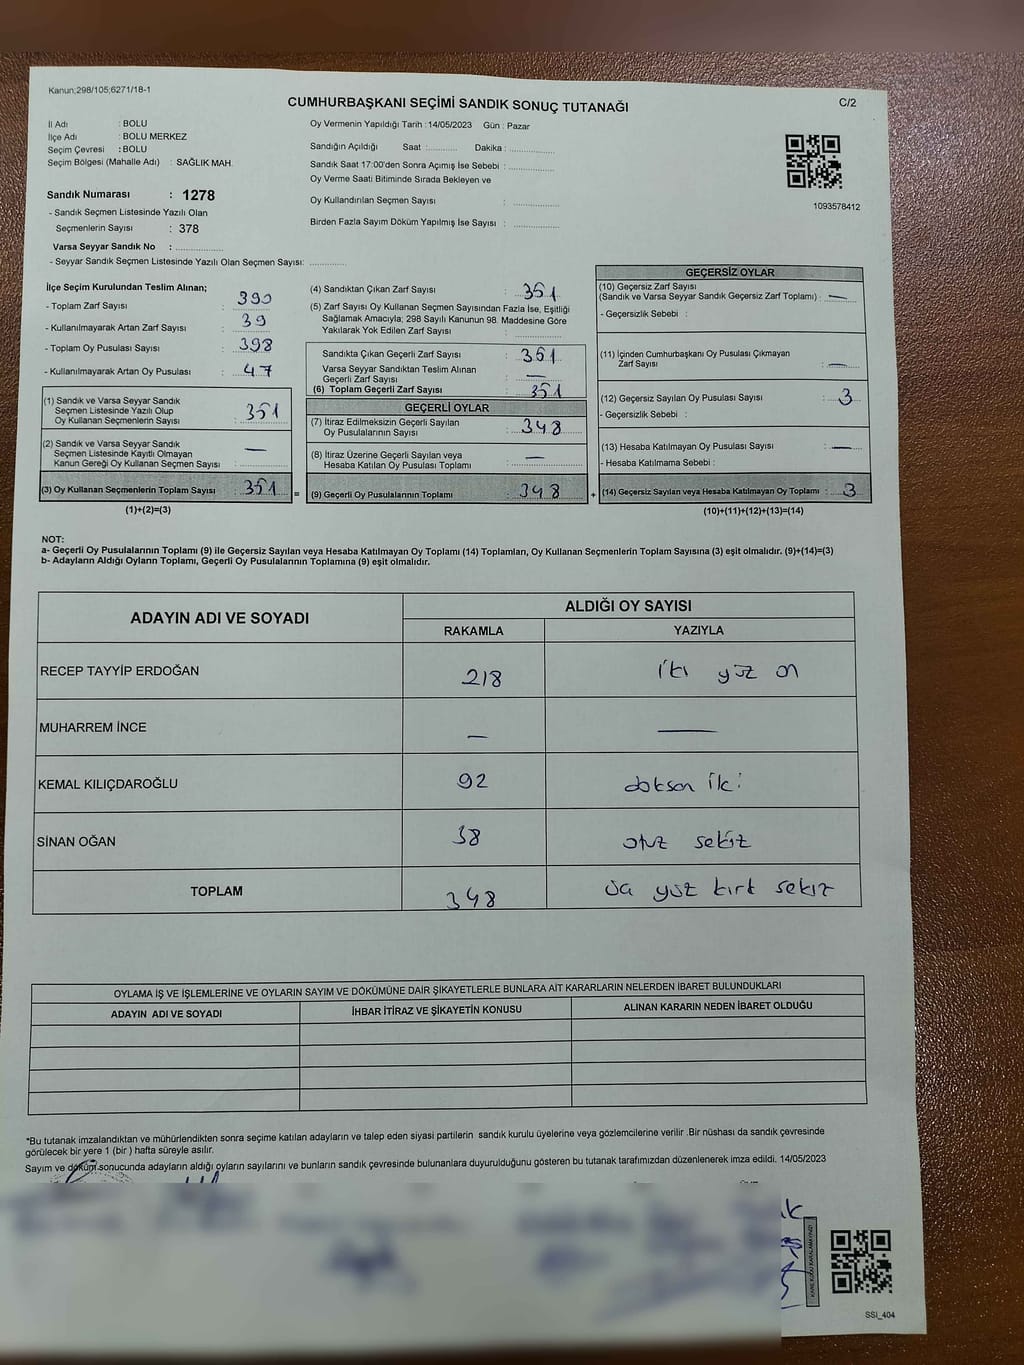 Kanun;298/105;6271/18-1
CUMHURBAŞKANI SEÇİMİ SANDIK SONUÇ TUTANAĞI
C/2
İl Adı : BOLU
İlçe Adı : BOLU MERKEZ
Seçim Çevresi : BOLU
Seçim Bölgesi (Mahalle Adı) : SAĞLIK MAH.
Sandık Numarası : 1278
- Sandık Seçmen Listesinde Yazılı Olan
Seçmenlerin Sayısı : 378
Varsa Seyyar Sandık No : ..............
- Seyyar Sandık Seçmen Listesinde Yazılı Olan Seçmen Sayısı: ............
Oy Vermenin Yapıldığı Tarih : 14/05/2023 Gün : Pazar
Sandığın Açıldığı Saat :........... Dakika: ................
Sandık Saat 17:00'den Sonra Açımış İse Sebebi : ................
Oy Verme Saati Bitiminde Sırada Bekleyen ve
Oy Kullandırılan Seçmen Sayısı : ................
Birden Fazla Sayım Döküm Yapılmış İse Sayısı : ................
1093578412
İlçe Seçim Kurulundan Teslim Alınan;
- Toplam Zarf Sayısı : 390
- Kullanılmayarak Artan Zarf Sayısı : 39
- Toplam Oy Pusulası Sayısı : 398
- Kullanılmayarak Artan Oy Pusulası : 47
(1) Sandık ve Varsa Seyyar Sandık
Seçmen Listesinde Yazılı Olup
Oy Kullanan Seçmenlerin Sayısı : 351
(2) Sandık ve Varsa Seyyar Sandık
Seçmen Listesinde Kayıtlı Olmayan
Kanun Gereği Oy Kullanan Seçmen Sayısı : —
(3) Oy Kullanan Seçmenlerin Toplam Sayısı : 351
(1)+(2)=(3)
=
(4) Sandıktan Çıkan Zarf Sayısı : 351
(5) Zarf Sayısı Oy Kullanan Seçmen Sayısından Fazla İse, Eşitliği
Sağlamak Amacıyla; 298 Sayılı Kanunun 98. Maddesine Göre
Yakılarak Yok Edilen Zarf Sayısı : ................
Sandıkta Çıkan Geçerli Zarf Sayısı : 351
Varsa Seyyar Sandıktan Teslim Alınan
Geçerli Zarf Sayısı : —
(6) Toplam Geçerli Zarf Sayısı : 351
GEÇERLİ OYLAR
(7) İtiraz Edilmeksizin Geçerli Sayılan
Oy Pusulalarının Sayısı : 348
(8) İtiraz Üzerine Geçerli Sayılan veya
Hesaba Katılan Oy Pusulası Toplamı : —
(9) Geçerli Oy Pusulalarının Toplamı : 348
+
GEÇERSİZ OYLAR
(10) Geçersiz Zarf Sayısı
(Sandık ve Varsa Seyyar Sandık Geçersiz Zarf Toplamı) : —
- Geçersizlik Sebebi :
(11) İçinden Cumhurbaşkanı Oy Pusulası Çıkmayan
Zarf Sayısı : —
(12) Geçersiz Sayılan Oy Pusulası Sayısı : 3
- Geçersizlik Sebebi :
(13) Hesaba Katılmayan Oy Pusulası Sayısı : —
- Hesaba Katılmama Sebebi :
(14) Geçersiz Sayılan veya Hesaba Katılmayan Oy Toplamı : 3
(10)+(11)+(12)+(13)=(14)
NOT:
a- Geçerli Oy Pusulalarının Toplamı (9) ile Geçersiz Sayılan veya Hesaba Katılmayan Oy Toplamı (14) Toplamları, Oy Kullanan Seçmenlerin Toplam Sayısına (3) eşit olmalıdır. (9)+(14)=(3)
b- Adayların Aldığı Oyların Toplamı, Geçerli Oy Pusulalarının Toplamına (9) eşit olmalıdır.
ADAYIN ADI VE SOYADI
ALDIĞI OY SAYISI
RAKAMLA YAZIYLA
RECEP TAYYİP ERDOĞAN 218 iki yüz on
MUHARREM İNCE — —
KEMAL KILIÇDAROĞLU 92 doksan iki
SİNAN OĞAN 38 otuz sekiz
TOPLAM 348 üç yüz kırk sekiz
OYLAMA İŞ VE İŞLEMLERİNE VE OYLARIN SAYIM VE DÖKÜMÜNE DAİR ŞİKAYETLERLE BUNLARA AİT KARARLARIN NELERDEN İBARET BULUNDUKLARI
ADAYIN ADI VE SOYADI İHBAR İTİRAZ VE ŞİKAYETİN KONUSU ALINAN KARARIN NEDEN İBARET OLDUĞU
*Bu tutanak imzalandıktan ve mühürlendikten sonra seçime katılan adayların ve talep eden siyasi partilerin sandık kurulu üyelerine veya gözlemcilerine verilir .Bir nüshası da sandık çevresinde
görülecek bir yere 1 (bir ) hafta süreyle asılır.
Sayım ve döküm sonucunda adayların aldığı oyların sayılarını ve bunların sandık çevresinde bulunanlara duyurulduğunu gösteren bu tutanak tarafımızdan düzenlenerek imza edildi. 14/05/2023
KARE KODU KARALAMAYINIZ!
SSİ_404